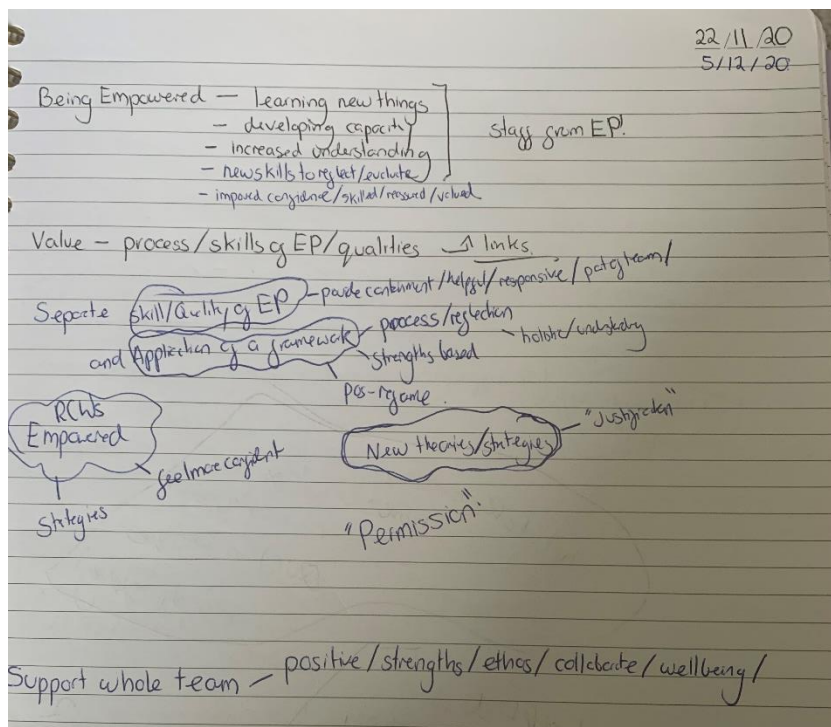 22/11/20
5/12/20
Being Empowered — learning new things
- developing capacity
- increased understanding
- new skills to reflect/evaluate
- improved confidence/skilled/reassured/valued
staff from EP!
Value - process/skills of EP/qualities links.
Separate Skill/Quality of EP - provide containment/helpful/responsive/part of team/
and Application of a framework - process/reflection
- holistic/understanding
strengths based
pos-reframe.
RCWs
Empowered
feel more confident
strategies
New theories/strategies - "Justification"
"Permission".
Support whole team - positive/strengths/ethos/collaborate/wellbeing/